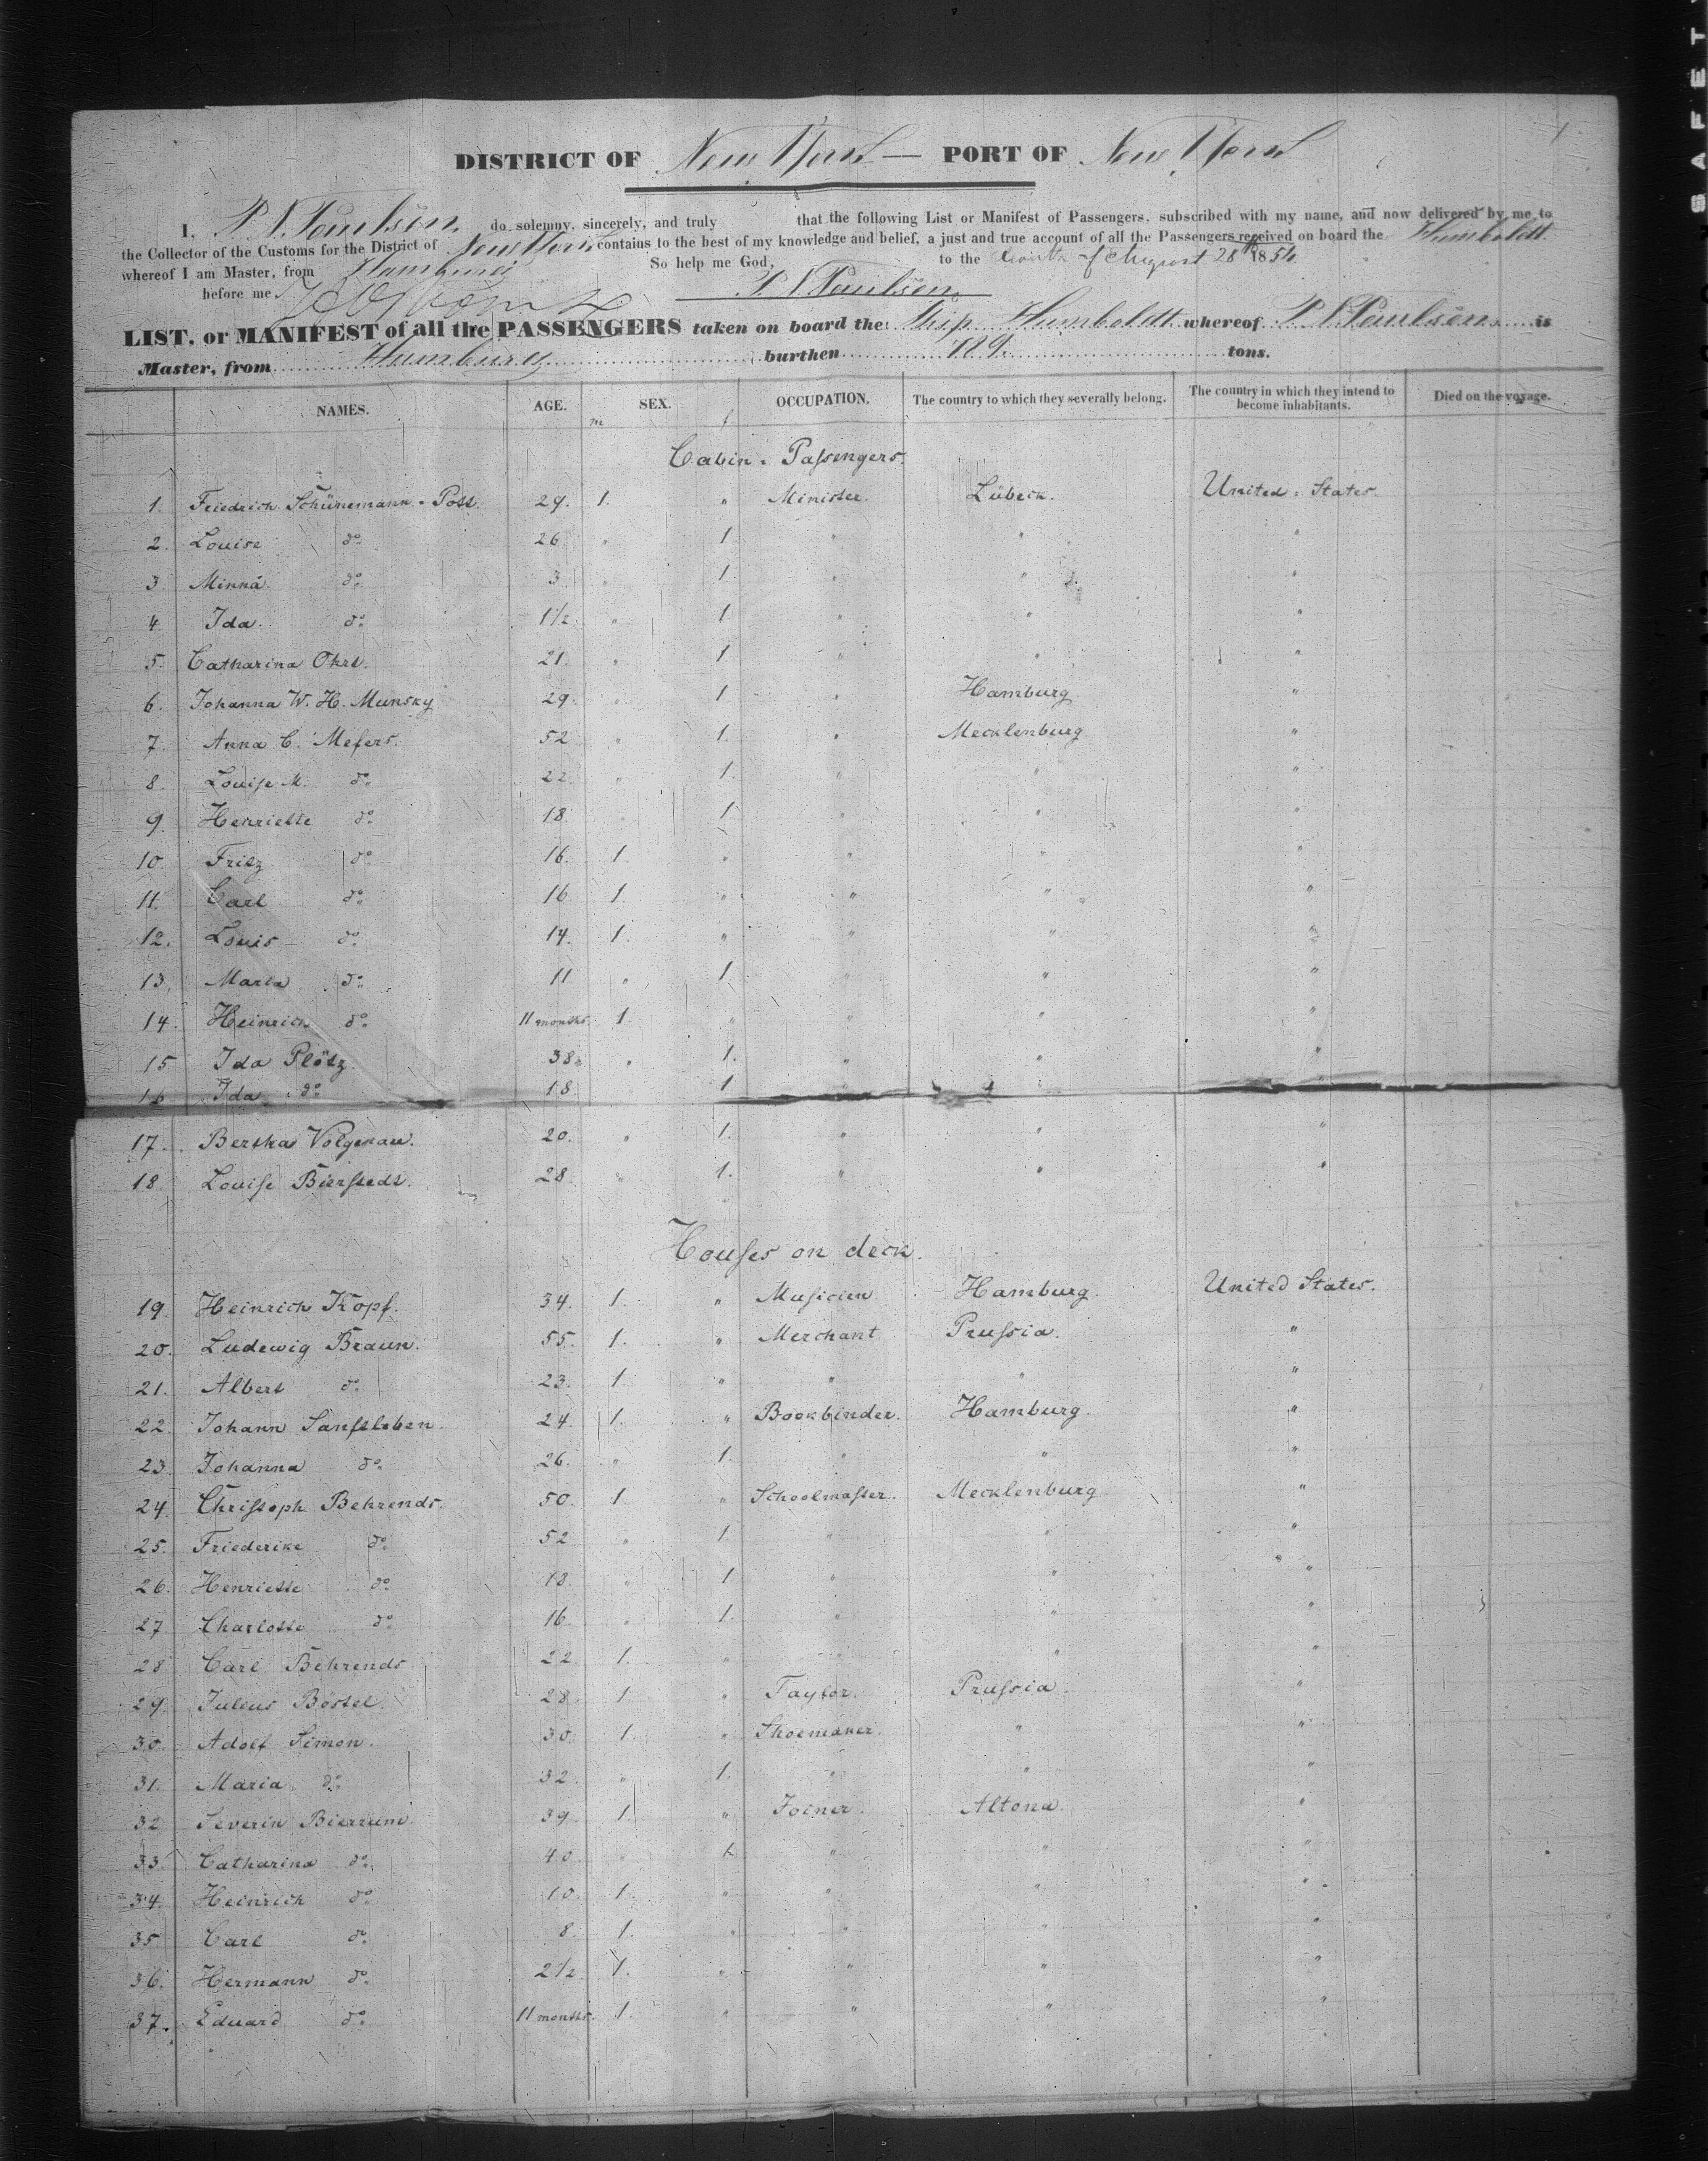 SAFETY
DISTRICT OF New York — PORT OF New York
I, P. N. Paulsen do solemny, sincerely, and truly that the following List or Manifest of Passengers, subscribed with my name, and now delivered by me to
the Collector of the Customs for the District of New York contains to the best of my knowledge and belief, a just and true account of all the Passengers received on board the Humboldt
whereof I am Master, from Hamburg So help me God, to the of August 28th 1854
before me P. N. Paulsen
LIST, or MANIFEST of all the PASSENGERS taken on board the Ship Humboldt whereof P. N. Paulsen is
Master, from Hamburg burthen 189 tons.
NAMES. AGE. SEX. OCCUPATION. The country to which they severally belong. The country in which they intend to become inhabitants. Died on the voyage.
m f
Cabin - Passengers.
1. Friedrich Schünemann - Pott. 29. 1. " Minister. Lübeck. United - States.
2. Louise do 26 " 1. " " "
3 Minna. do 3 " 1. " " "
4. Ida. do 1 1/2. " 1 " " "
5. Catharina Ohrt. 21. " 1. " " "
6. Johanna W. H. Munsky 29. " 1. " Hamburg "
7. Anna C. Mefers. 52 " 1. " Mecklenburg "
8. Louise M. do 22. " 1. " " "
9. Henriette do 18. " 1. " " "
10. Fritz do 16. 1. " " " "
11. Carl do 16 1. " " " "
12. Louis do 14. 1. " " " "
13. Maria do 11 " 1. " " "
14. Heinrich do 11 months. 1. " " " "
15 Ida Plötz. 38. " 1. " " "
16 Ida do 18. 1
17. Bertha Volgenau. 20. " 1. " " "
18 Louise Bierstedt. 28 " 1. " " "
Houses on deck.
19. Heinrich Kopf. 34. 1. " Musicien Hamburg. United States.
20. Ludewig Braun. 55. 1. " Merchant Prussia. "
21. Albert do 23. 1 " " " "
22. Johann Sanftleben. 24. 1. " Bookbinder. Hamburg. "
23. Johanna do 26. " 1. " " "
24. Christoph Behrends. 50. 1. " Schoolmaster. Mecklenburg "
25. Friederike do 52 " 1. " " "
26. Henriette do 18 " 1. " " "
27 Charlotte do 16 " 1. " " "
28 Carl Behrends 22 1. " " "
29. Julius Bostel. 28. 1 " Taylor. Prussia. "
30. Adolf Simon. 30. 1. " Shoemaker. " "
31. Maria do 32. " 1. " " "
32 Severin Bierrum. 39. 1. " Joiner. Altona. "
33. Catharina do 40 " 1. " " "
34. Heinrich do 10. 1. " " " "
35 Carl do 8. 1. " " " "
36. Hermann do 2 1/2 1. " " " "
37. Eduard do 11 months. 1. " " " "